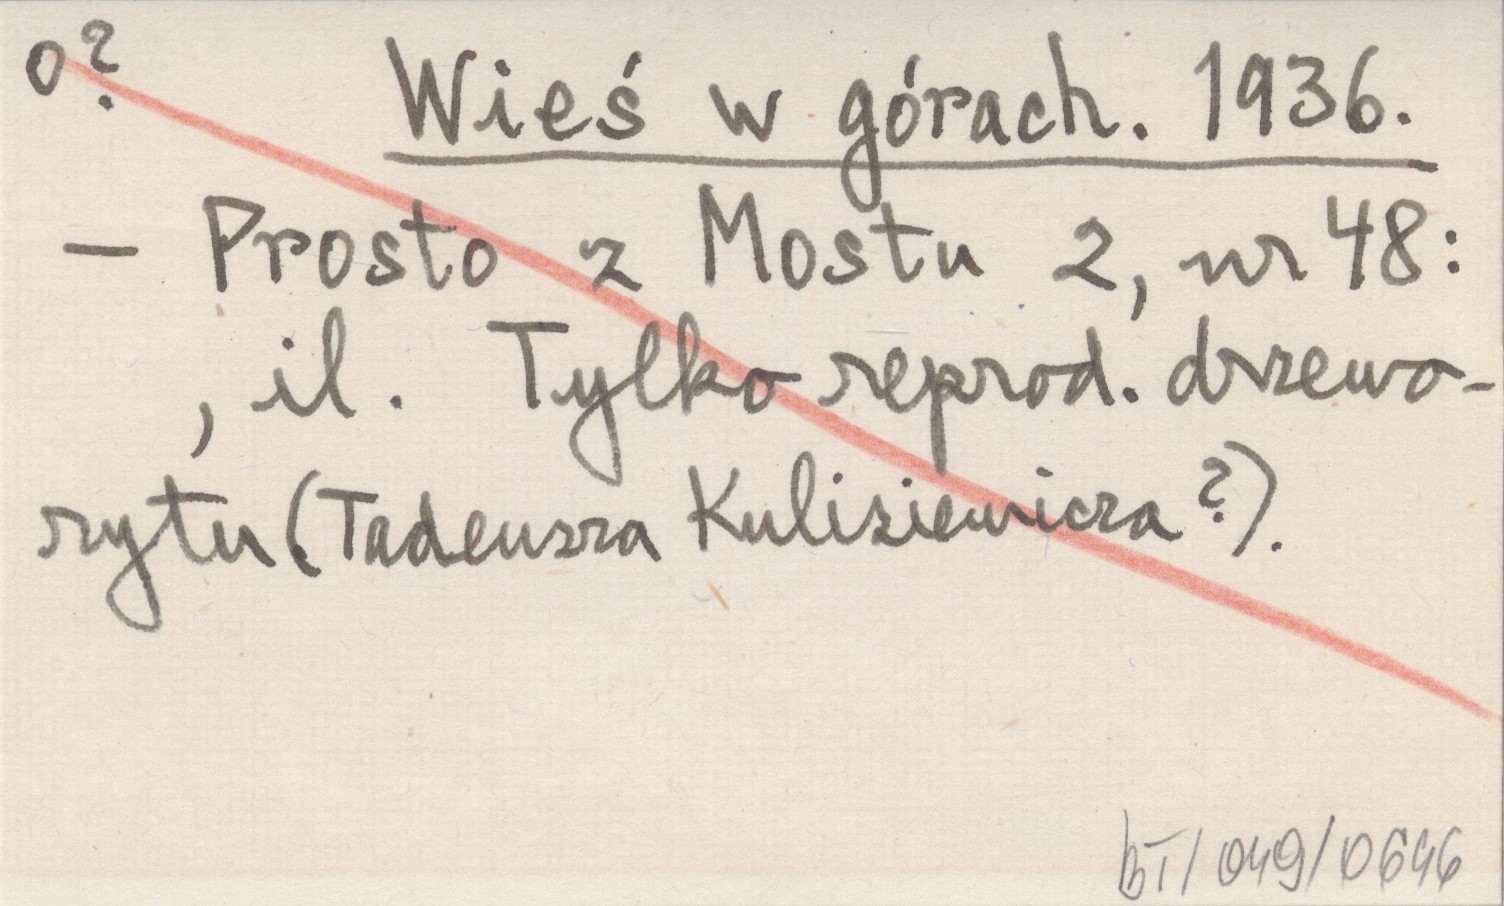 o?
Wieś w górach. 1936.
— Prosto z Mostu 2, nr 48:
, il. Tylko reprod. drzewo-
rytu (Tadeusza Kulisiewicza?).
bT/049/0646